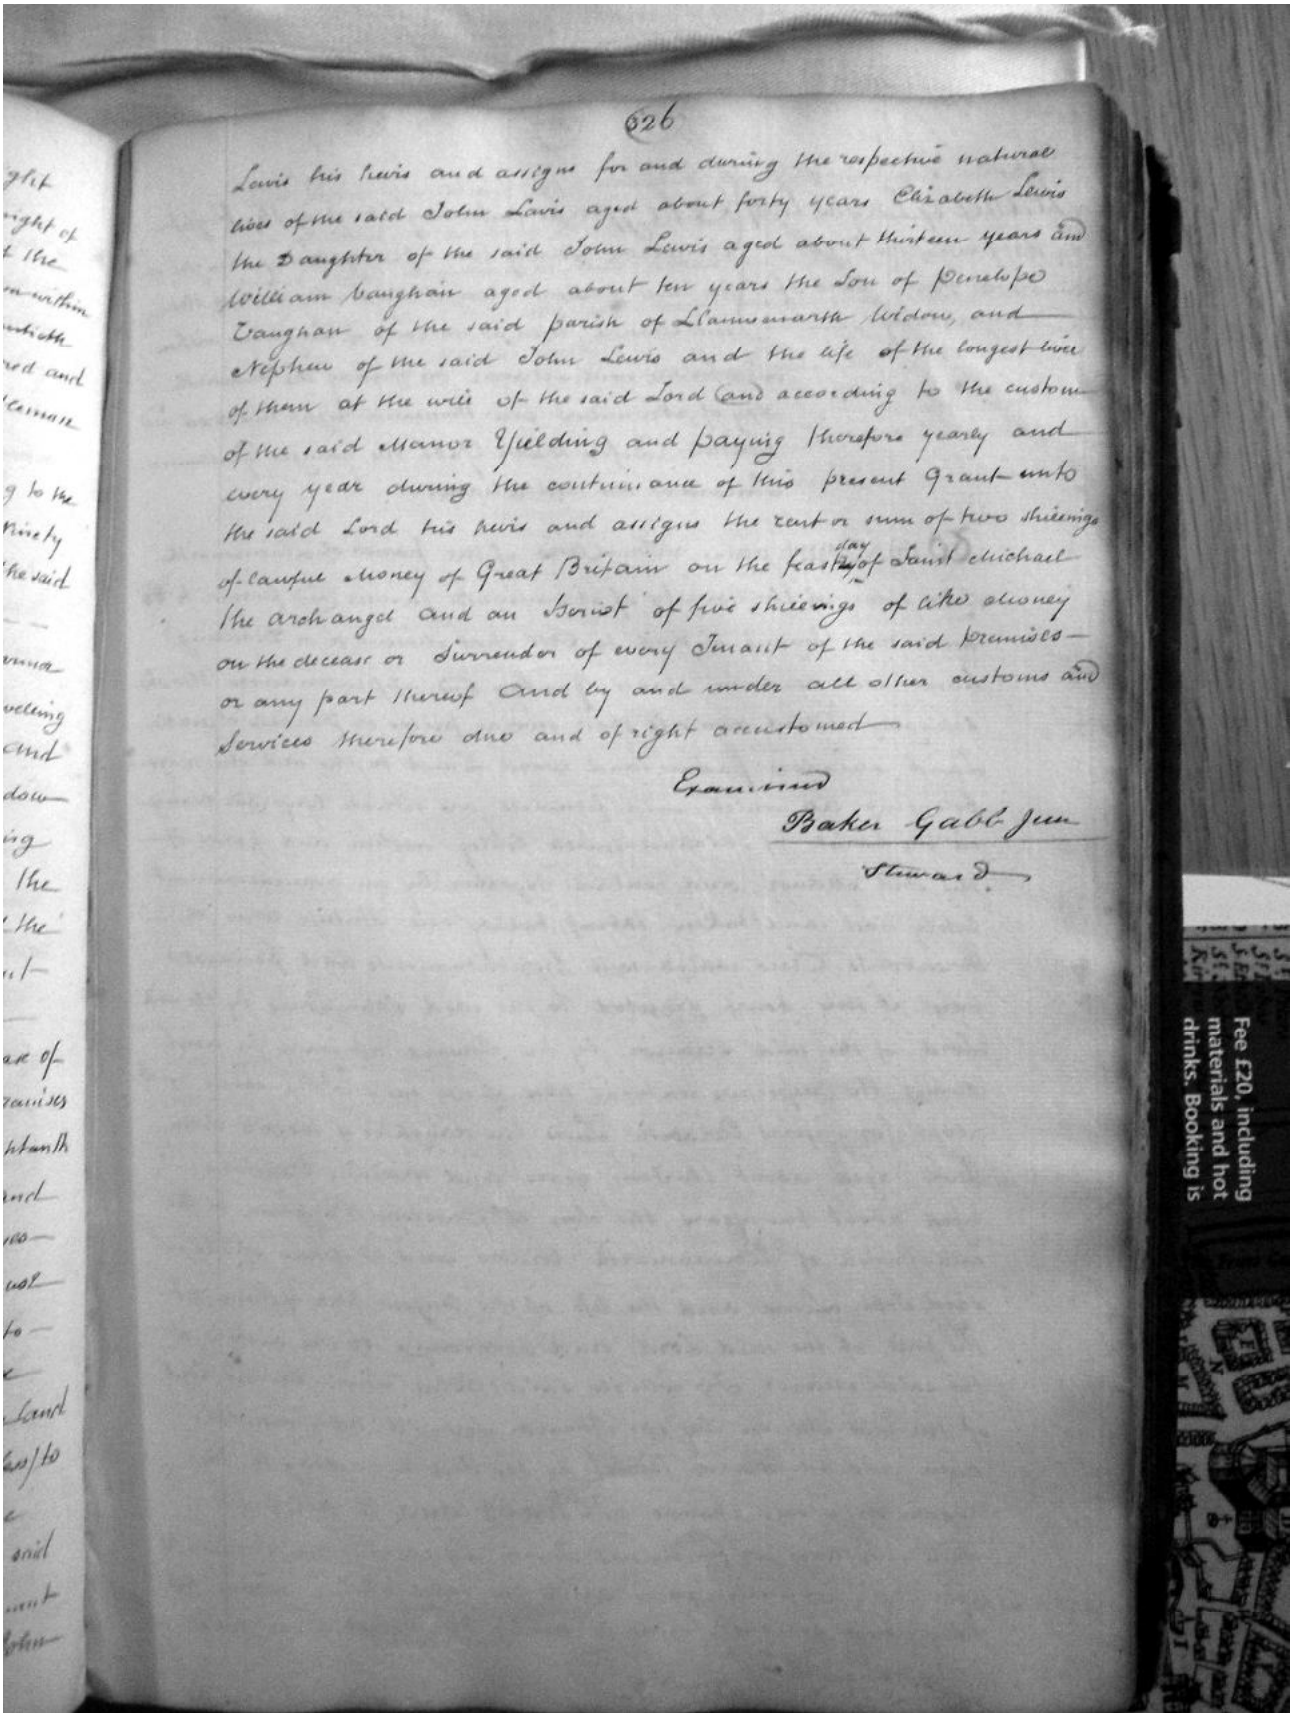 326
Lewis his heirs and assigns for and during the respective natural
lives of the said John Lewis aged about forty years Elizabeth Lewis
the Daughter of the said John Lewis aged about thirteen years and
William Vaughan aged about ten years the Son of Penelope
Vaughan of the said parish of Llanwenarth Widow, and
Nephew of the said John Lewis and the life of the longest liver
of them at the will of the said Lord and according to the custom
of the said Manor Yielding and paying therefore yearly and
every year during the continuance of this present Grant unto
the said Lord his heirs and assigns the rent or sum of two shillings
of lawful Money of Great Britain on the feast day of Saint Michael
the archangel and an Heriot of five shillings of like Money
on the decease or Surrender of every Tenant of the said premises
or any part thereof and by and under all other customs and
Services therefore due and of right accustomed
Examined
Baker Gabb Junr
Steward
ght
right of
the
within
red and
g to the
ninety
the said
and
the
the
and
to
Land
to
said
John
Fee £20, including
materials and hot
drinks. Booking is